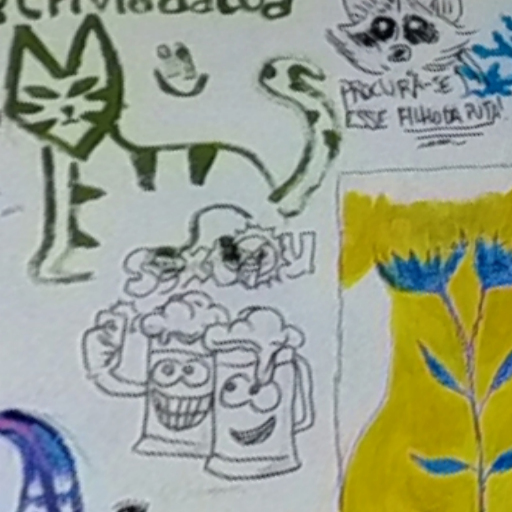 PROCURA-SE
ESSE FILHO DA PUTA!
SEXTOU